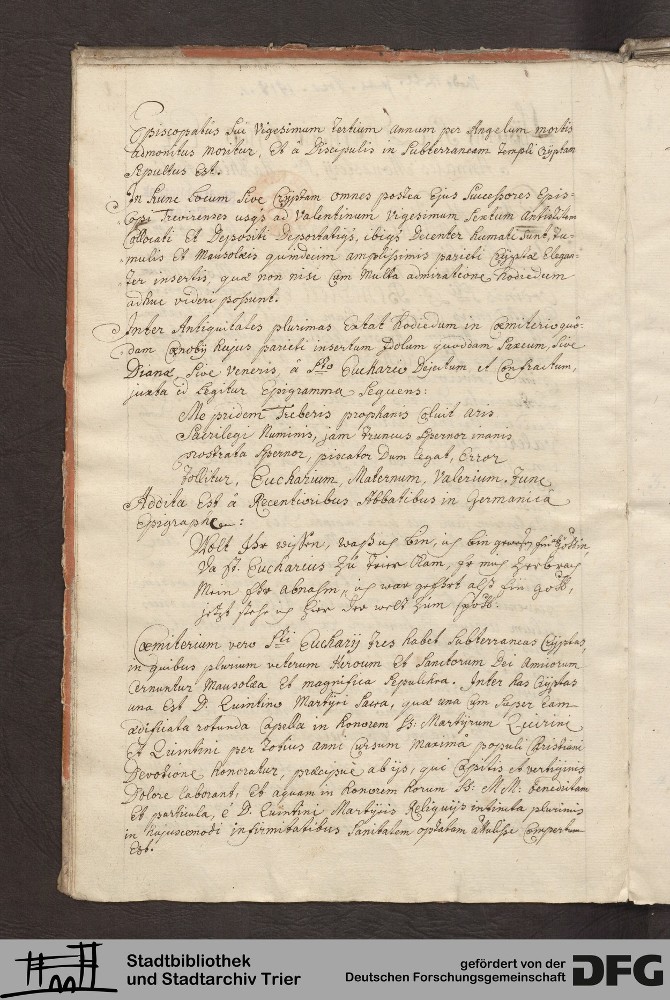 Episcopatus sui vigesimum tertium annum per Angelum mortis
admonitus moritur, et à Discipulis in subterraneam templi Cryptam
sepultus est.
In hunc locum sive Cryptam omnes postea ejus successores Epis-
copi Trevirenses usqs ad Valentinum vigesimum sextum Antistitem
Collocati et Depositi Deportatiqs, ibiqs Decenter humati sunt, tu-
mulis et Mausolæis quindecim amplissimis parieti Cryptæ elegan-
ter insertis, quæ non nisi cum multa admiratione hodiedum
adhuc videri possunt.
Inter Antiquitates plurimas extat hodiedum in cœmiterio quo-
dam Cœnobij hujus parieti insertum Idolum quoddam saxeum, sive
Dianæ sive Veneris, à Sto Euchario Dejectum et Confractum,
juxta id legitur Epigramma sequens:
Me pridem Treberis prophanis coluit aris
Sacrilegi Numinis, jam truncus spernor inanis
prostrata spernor, piscator dum legat, error
tollitur, Eucharium, Maternum, Valerium, tunc
Addita est à Recentioribus Abbatibus in Germanica
Epigraphe:
Wolt Ihr wissen, waß ich bin, ich bin gewesen ein Göttin,
Da St. Eucharius zu Trier kam, Er mich zerbrach
Mein Ehr abnahm, ich war geehrt alß ein Gott,
jetzt stehe ich hier der welt zum spott.
Cœmiterium vero Sti Eucharij tres habet subterraneas Cryptas,
in quibus plurium veterum Heroum et Sanctorum Dei Amicorum
cernuntur Mausolæa et magnifica sepulchra. Inter has Cryptas
una est D. Quintino Martyri sacra, quæ una cum super eam
ædificata rotunda Capella in honorem SS: Martyrum Quirini
et Quintini per totius anni Cursum maximâ populi Christiani
Devotione honoratur, præcipuè ab ijs, qui Capitis et vertiginis
Dolore laborant, et aquam in honorem horum SS: M.M. benedictam
et particula, è D. Quintini Martyris Reliquijs intincta plurimis
in hujuscemodi infirmitatibus sanitatem optatam attulisse Compertum
Est.
Stadtbibliothek
und Stadtarchiv Trier
gefördert von der
Deutschen Forschungsgemeinschaft
DFG